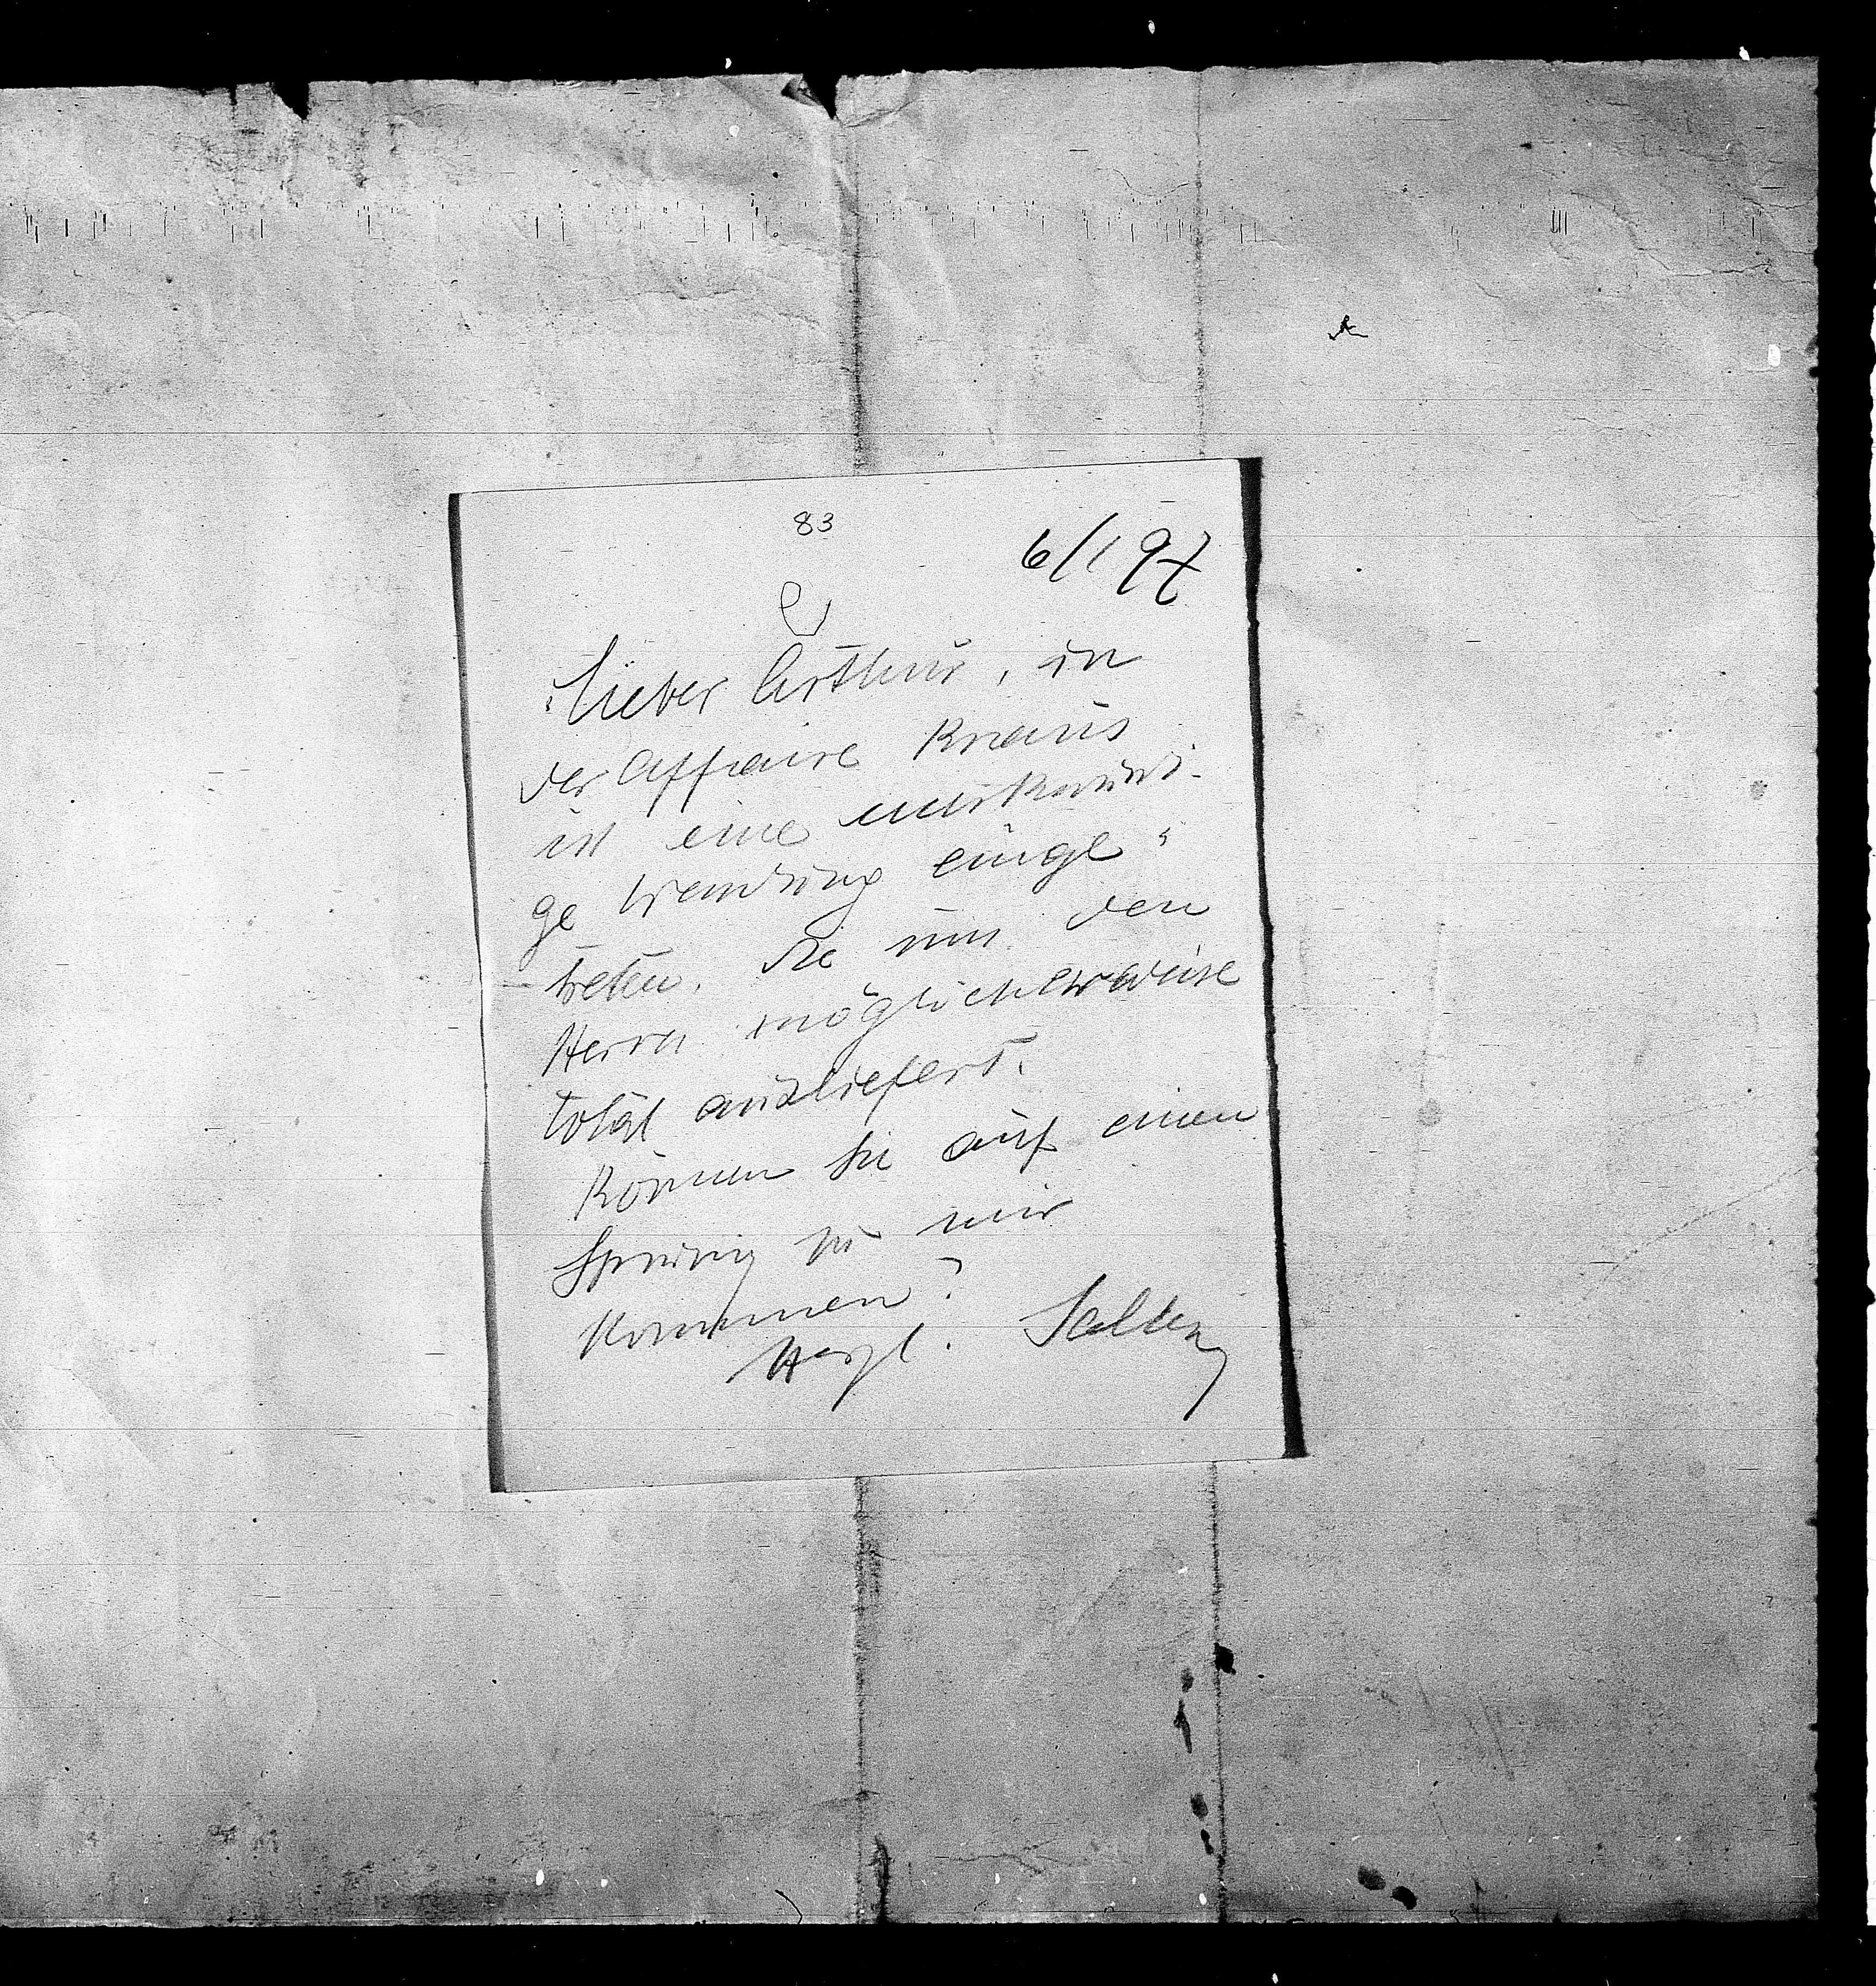 83
6/1 97
Lieber Arthur, in
der Affaire Kraus
ist eine merkwürdi-
ge Wendung einge-
treten. die uns den
Herrn möglicherweise
total ausliefert.
Können Sie auf einen
Sprung zu mir
kommen?
Herzl. Salten